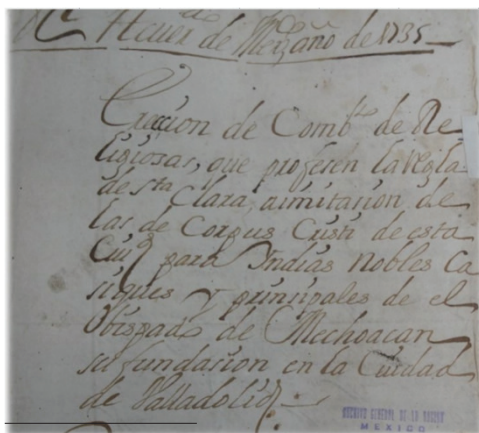 de Mex.º año de 1735
Ereccion de Comb.to de Re
ligiosas, que profesen la regla
de s.ta Clara, aimitasion de
las de Corpus Cristi de esta
Ciu.d para Indias Nobles Ca
siques y prinsipales de el
Obispado de Mechoacan
su fundasion en la Cuidad
de Valladolid.
ARCHIVO GENERAL DE LA NACION
MEXICO